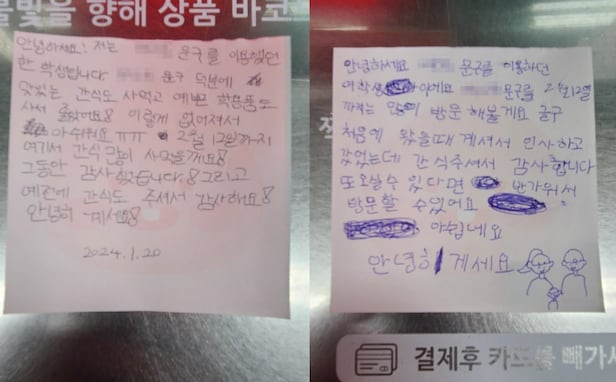 불빛을 향해 상품 바코
안녕하세요! 저는 문구를 이용했던
한 학생입니다 문구 덕분에
맛있는 간식도 사먹고 예쁜 학용품도
사서 좋았어요! 이렇게 없어져서
아쉬워요 ㅠㅠ 2월 12일까지
여기서 간식 많이 사먹을께요!
그동안 감사했습니다! 그리고
예전에 간식도 주셔서 감사해요!
안녕히 계세요!
2024.1.20
안녕하세요 문구를 이용하던
여학생 이에요 문구를 2월12일
까지는 많이 방문 해볼게요 문구
처음에 왔을때 계셔서 인사하고
갔었는데 간식주셔서 감사합니다
또오실수 있다면 반가워서
방문할 수있어요
아쉽네요
안녕히 계세요
결제후 카드를 빼가세